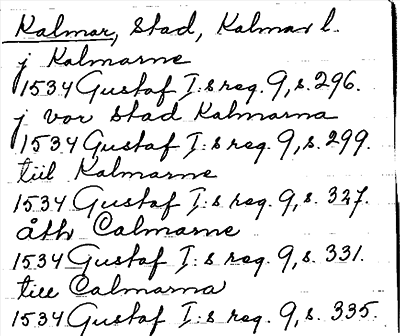 Kalmar, Stad, Kalmar l.
j Kalmarne
1534 Gustaf I:s reg. 9, s. 296.
j vor stad Kalmarna
1534 Gustaf I:s reg. 9, s. 299.
till Kalmarne
1534 Gustaf I:s reg. 9, s. 327.
åth Calmarne
1534 Gustaf I:s reg. 9, s. 331.
till Calmarna
1534 Gustaf I:s reg. 9, s. 335.